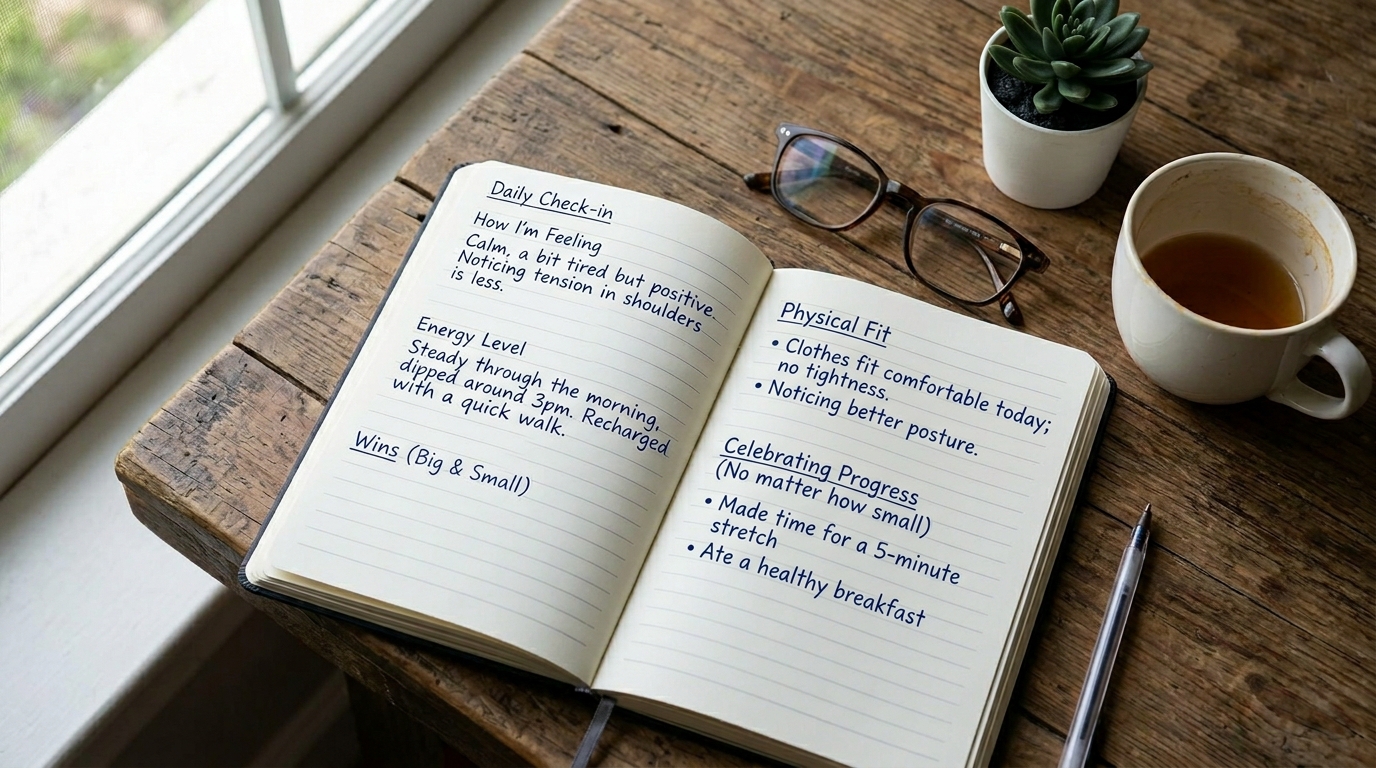 Daily Check-in
How I'm Feeling
Calm, a bit tired but positive.
Noticing tension in shoulders
is less.
Energy Level
Steady through the morning,
dipped around 3pm. Recharged
with a quick walk.
Wins (Big & Small)
Physical Fit
• Clothes fit comfortable today;
no tightness.
• Noticing better posture.
Celebrating Progress
(No matter how small)
• Made time for a 5-minute
stretch
• Ate a healthy breakfast